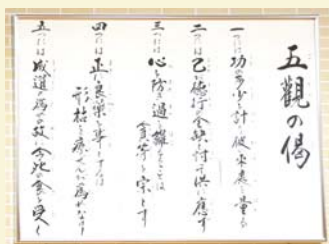 五觀の偈
一つには功の多少を計り彼の来處を量る
二つには己が徳行の全缺を忖て供に應ず
三つには心を防ぎ過を離るることは
貪等を宗とす
四つには正に良薬を事とするは
形枯を療ぜんが為なり
五つには成道の為の故に今此の食を受く